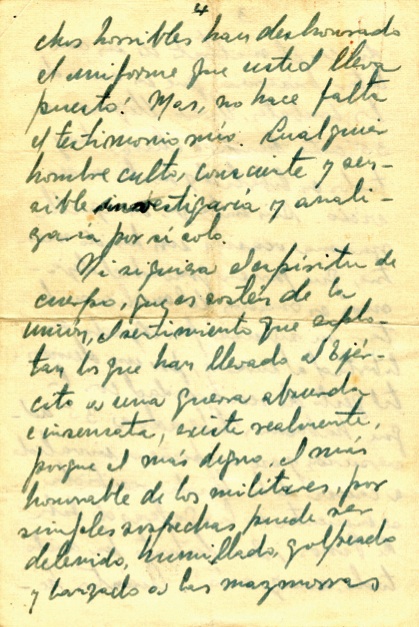 4
chos horribles han deshonrado
el uniforme que usted lleva
puesto! Mas, no hace falta
el testimonio mío. Cualquier
hombre culto, consciente y sen-
sible investigaría y anali-
zaría por sí solo.
Ni siquiera el espíritu de
cuerpo, que es sostén de la
unión, el sentimiento que explo-
tan los que han llevado al Ejér-
cito a una guerra absurda
e insensata, existe realmente,
porque el más digno, el más
honorable de los militares, por
simples sospechas, puede ser
detenido, humillado, golpeado
y lanzado a las mazmorras